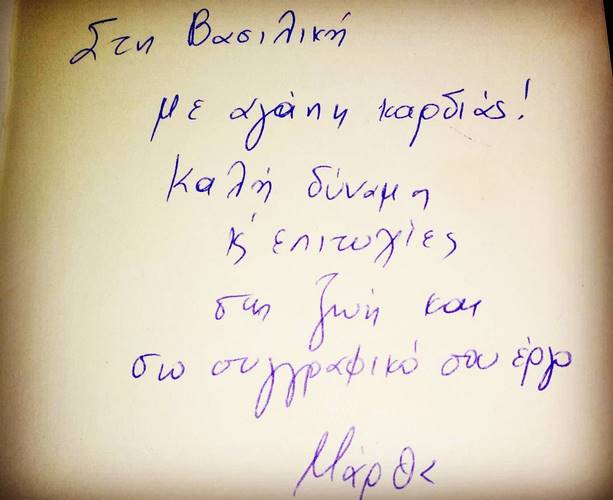 Στη Βασιλική
με αγάπη καρδιάς!
Καλή δύναμη
κ' επιτυχίες
στη ζωή και
στο συγγραφικό σου έργο
Μάρθα